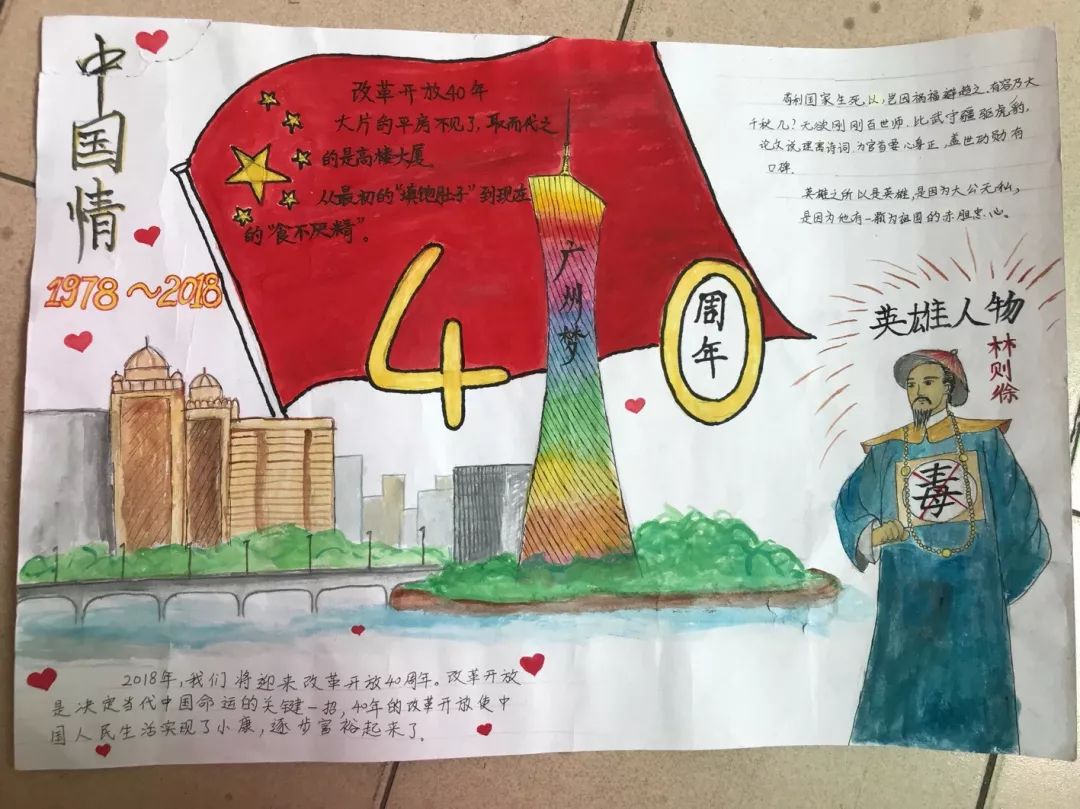 中国情
1978～2018
改革开放40年
大片的平房不见了，取而代之
的是高楼大厦
从最初的“填饱肚子”到现在
的“食不厌精”。
40
周年
广州梦
苟利国家生死，以，岂因祸福避趋之.有容乃大
千秋几？无欲刚刚百世师.比武守疆驱虎豹，
论文说理寓诗词.为官首要心身正，盖世功勋有
口碑.
英雄之所以是英雄，是因为大公无私，
是因为他有一颗为祖国的赤胆忠心。
英雄人物
林则徐
毒
2018年，我们将迎来改革开放40周年。改革开放
是决定当代中国命运的关键一招，40年的改革开放使中
国人民生活实现了小康，逐步富裕起来了。